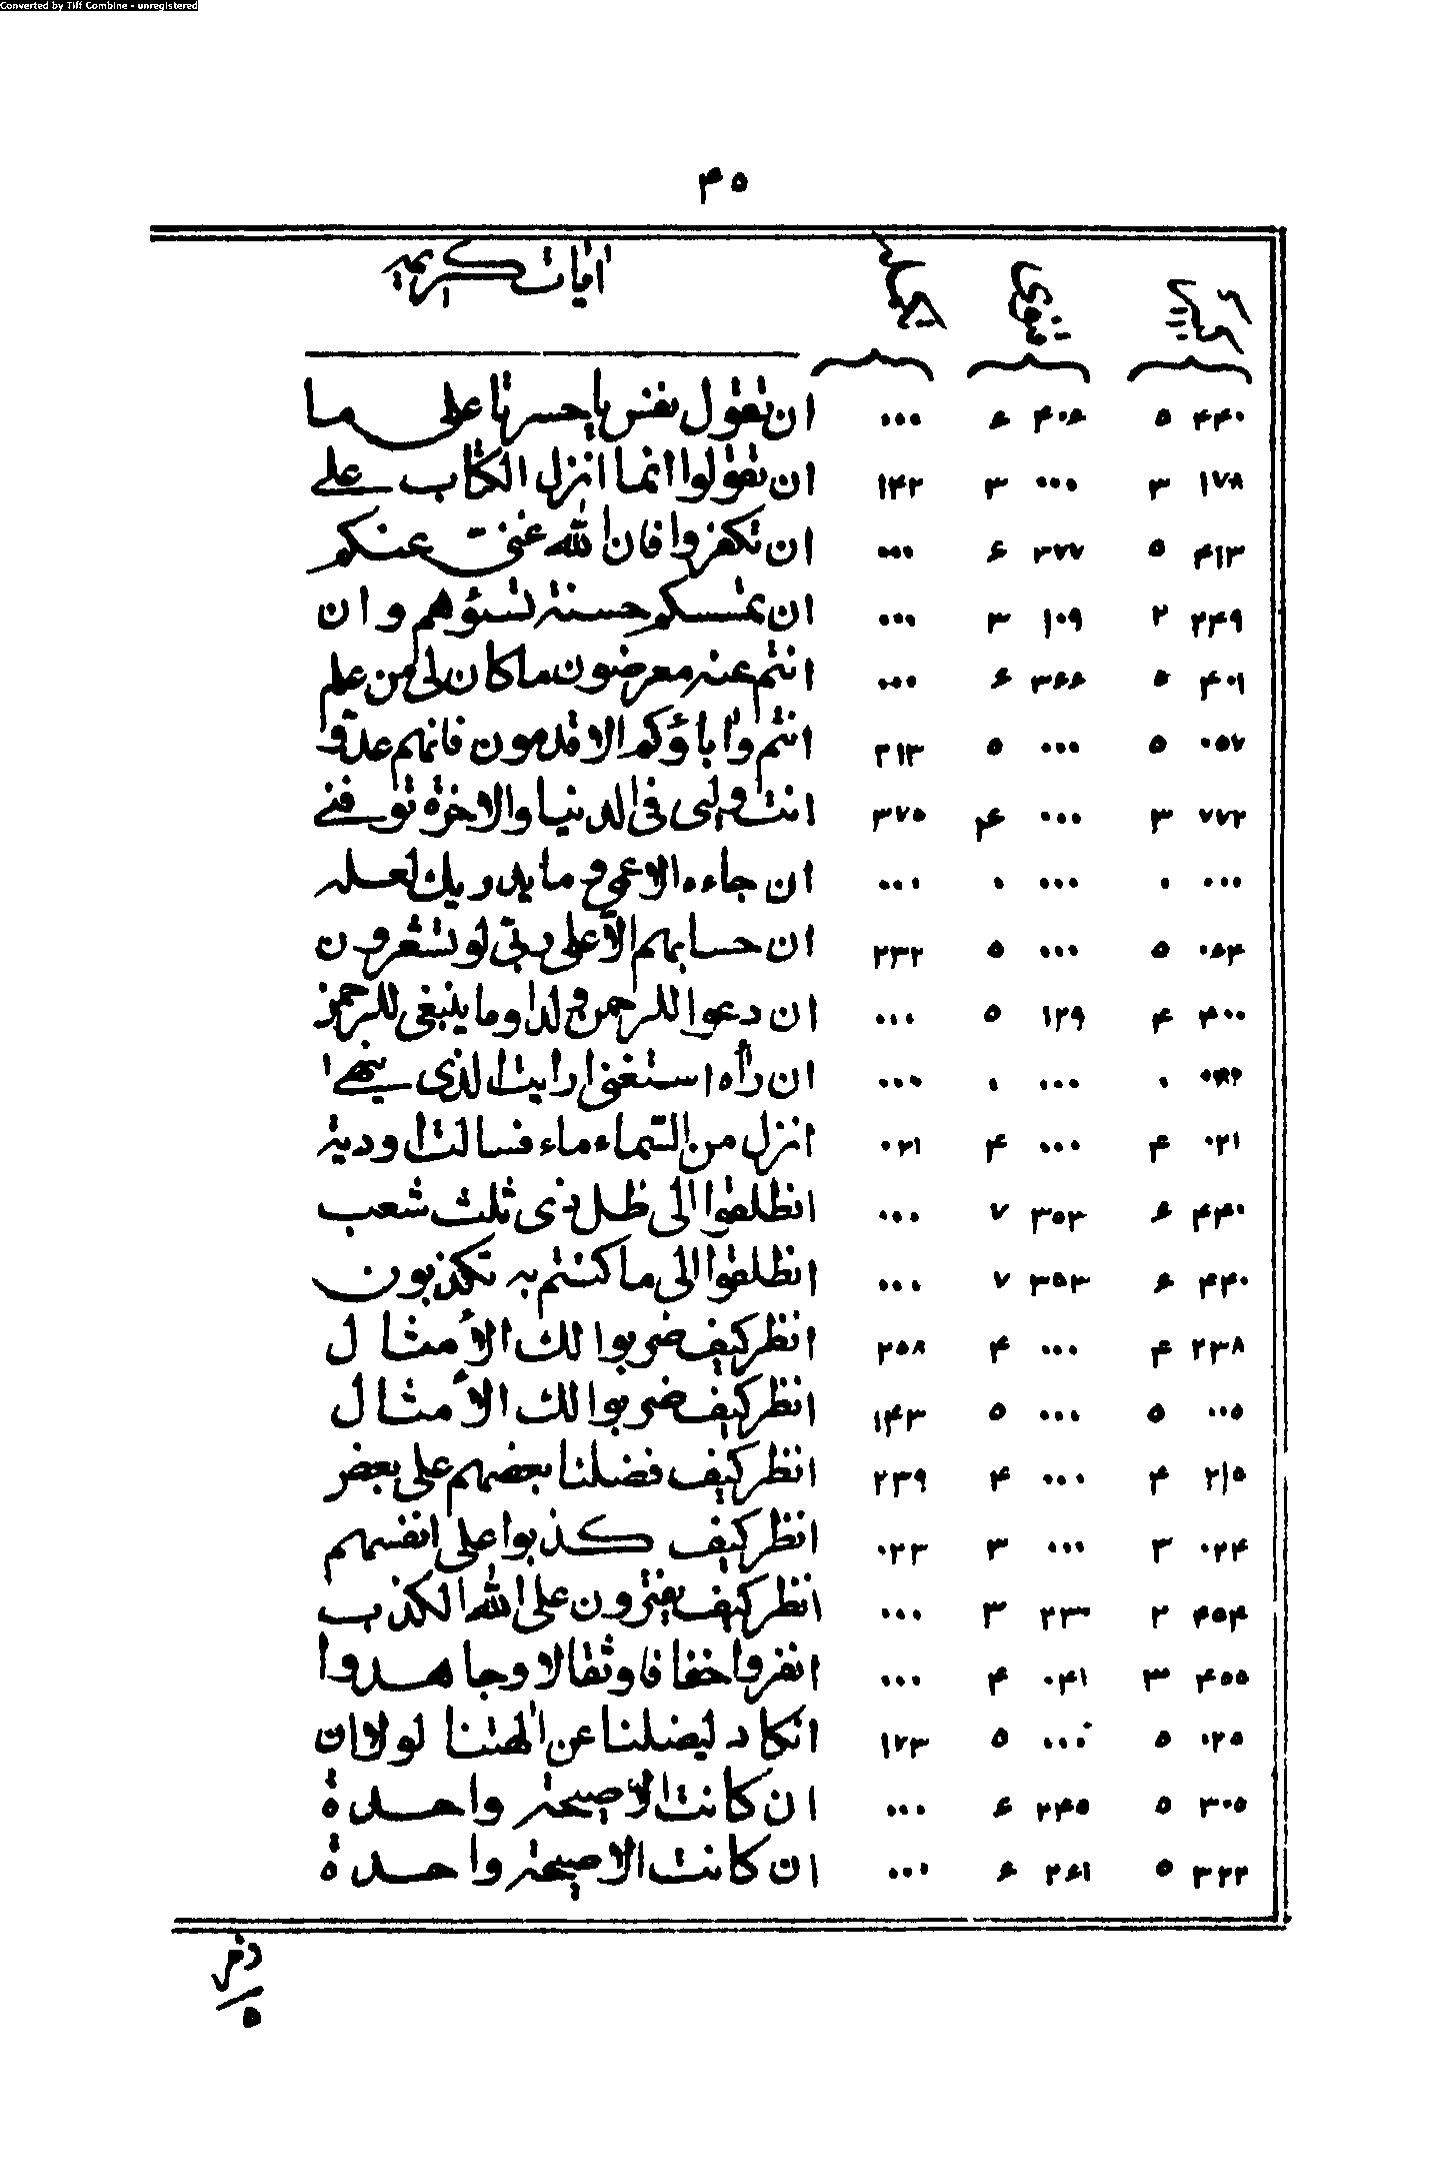 Converted by Tiff Combine - unregistered
۴۵
اٰيات كريمه
۴۴۰ ۵ ۴۰۶ ۶ ۰۰۰ ان تقول نفس ياحسرتا على ما
۱۷۸ ۳ ۰۰۰ ۳ ۱۴۲ ان تقولوا انما انزل الكتاب على
۴۱۳ ۵ ۳۷۷ ۶ ۰۰۰ ان تكفروا فان الله غنى عنكم
۲۴۹ ۲ ۱۰۹ ۳ ۰۰۰ ان تمسسكم حسنة تسؤهم و ان
۴۰۱ ۵ ۳۶۶ ۶ ۰۰۰ انتم عنه معرضون ما كان لى من علم
۰۵۷ ۵ ۰۰۰ ۵ ۲۱۳ انتم واٰباؤكم الاقدمون فانهم عدو
۷۷۲ ۳ ۰۰۰ ۴ ۳۷۵ انت وليى فى الدنيا والاخرة توفنى
۰۰۰ ۰ ۰۰۰ ۰ ۰۰۰ ان جاءه الاعمى و ما يدريك لعله
۰۵۴ ۵ ۰۰۰ ۵ ۲۳۲ ان حسابهم الا على ربى لو تشعرون
۴۰۰ ۴ ۱۲۹ ۵ ۰۰۰ ان دعوا للرحمن ولدا وما ينبغى للرحمن
۰۰۰ ۰ ۰۰۰ ان رأه استغنى ارايت الذى ينهى
۰۲۱ ۴ ۰۰۰ ۴ ۰۲۱ انزل من السماء ماء فسالت اودية
۴۴۰ ۶ ۳۵۳ ۷ ۰۰۰ انطلقوا الى ظل ذى ثلث شعب
۴۴۰ ۶ ۳۵۳ ۷ ۰۰۰ انطلقوا الى ما كنتم به تكذبون
۲۳۸ ۴ ۰۰۰ ۴ ۲۵۸ انظر كيف ضربوا لك الأمثال
۰۰۵ ۵ ۰۰۰ ۵ ۱۴۳ انظر كيف ضربوا لك الأمثال
۲۱۵ ۴ ۰۰۰ ۴ ۲۳۹ انظر كيف فضلنا بعضهم على بعض
۰۲۴ ۳ ۰۰۰ ۳ ۰۲۳ انظر كيف كذبوا على انفسهم
۴۵۴ ۲ ۲۳۰ ۳ ۰۰۰ انظر كيف يفترون على الله الكذب
۴۵۵ ۳ ۰۴۱ ۴ ۰۰۰ انفروا خفافا وثقالا وجاهدوا
۰۲۵ ۵ ۰۰۰ ۵ ۱۷۳ انكاد ليضلنا عن اٰلهتنا لولا ان
۳۰۵ ۵ ۲۴۵ ۶ ۰۰۰ ان كانت الا صيحة واحدة
۳۲۲ ۵ ۲۶۱ ۶ ۰۰۰ ان كانت الا صيحة واحدة
۵